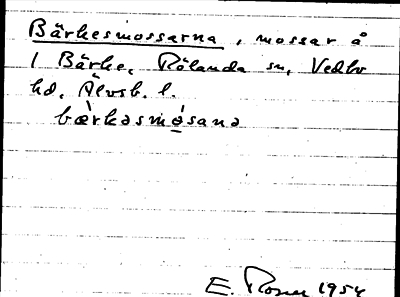 Bärkesmossarna, mossar å
1 Bärke, Rölanda sn, Vedbo
hd. Älvsb. l.
bærkəsmåsana
E. Rosen 1954